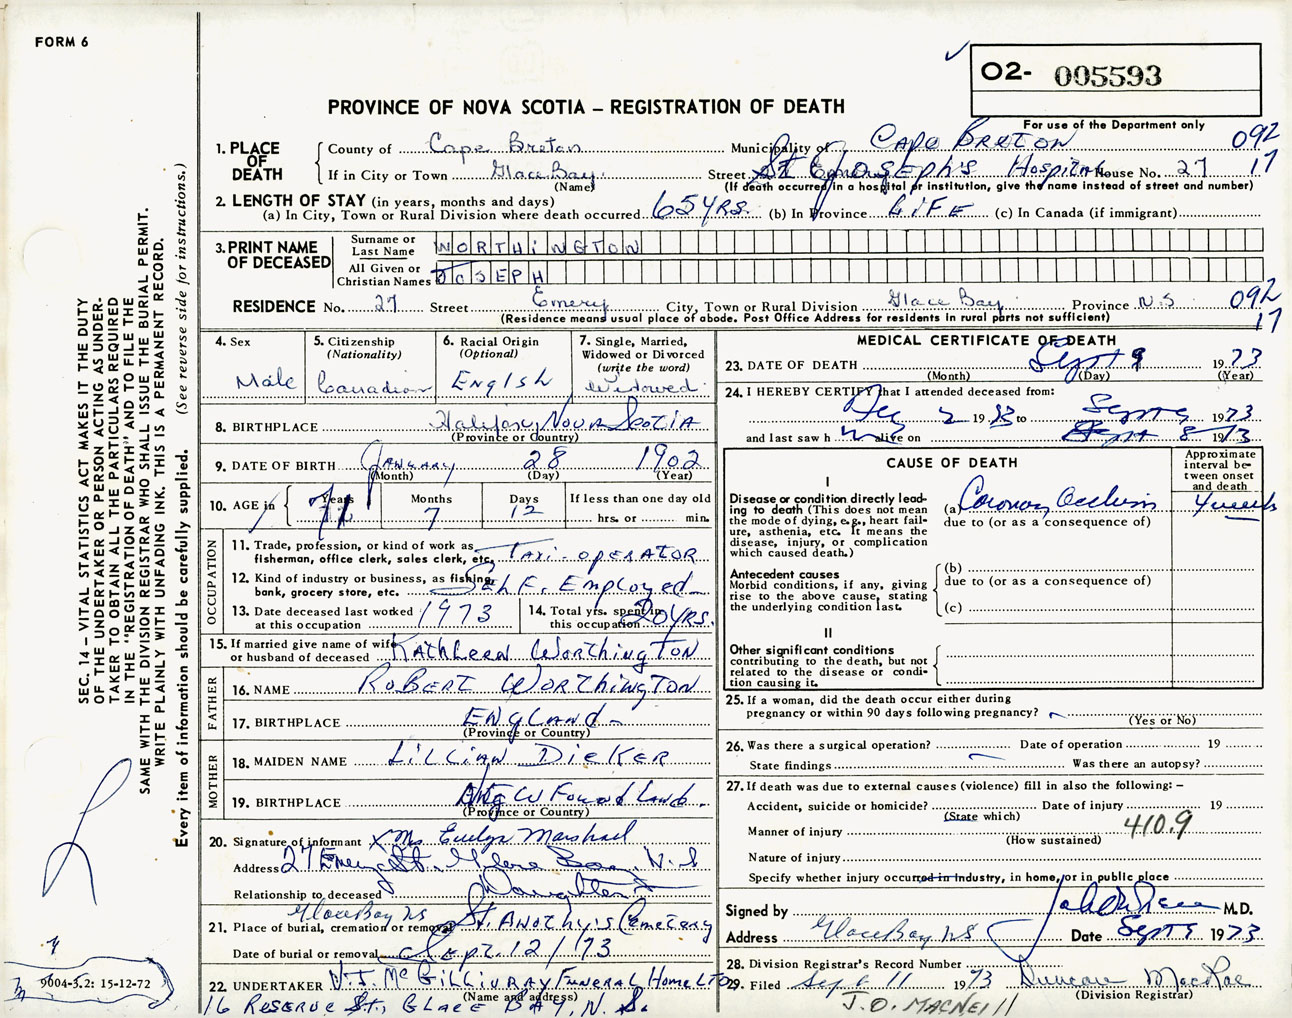 FORM 6
O2- 005593
PROVINCE OF NOVA SCOTIA – REGISTRATION OF DEATH
For use of the Department only
1. PLACE OF DEATH
County of Cape Breton Municipality of CAPE BRETON 092
If in City or Town Glace Bay. Street St JOSEPH'S HOSPITAL House No. 27 17
(Name) (If death occurred in a hospital or institution, give the name instead of street and number)
2. LENGTH OF STAY (in years, months and days)
(a) In City, Town or Rural Division where death occurred 65 YRS. (b) In Province LIFE (c) In Canada (if immigrant)
3. PRINT NAME OF DECEASED
Surname or Last Name WORTHINGTON
All Given or Christian Names JOSEPH
RESIDENCE No. 27 Street Emery City, Town or Rural Division Glace Bay. Province N.S 092
(Residence means usual place of abode. Post Office Address for residents in rural parts not sufficient) 17
4. Sex
Male
5. Citizenship
(Nationality)
Canadian
6. Racial Origin
(Optional)
ENGlSH
7. Single, Married,
Widowed or Divorced
(write the word)
Widowed
8. BIRTHPLACE Halifax, NOVA SCOTIA
(Province or Country)
9. DATE OF BIRTH JANUARY 28 1902
(Month) (Day) (Year)
10. AGE in
Years 71
Months 7
Days 12
If less than one day old
hrs. or min.
OCCUPATION
11. Trade, profession, or kind of work as
fisherman, office clerk, sales clerk, etc. TAXI-OPERATOR
12. Kind of industry or business, as fishing,
bank, grocery store, etc. Self. Employed
13. Date deceased last worked
at this occupation 1973
14. Total yrs. spent in
this occupation 20 YRS.
15. If married give name of wife
or husband of deceased KATHLEEN WORTHINGTON
FATHER
16. NAME ROBERT WORTHINGTON
17. BIRTHPLACE ENGLAND
(Province or Country)
MOTHER
18. MAIDEN NAME LILLIAN DIEKER
19. BIRTHPLACE NEWFOUNDLAND.
(Province or Country)
20. Signature of informant x Mrs Evelyn Marshall
Address 27 Emery St. Glace Bay, N.S
Relationship to deceased Daughter
Glace Bay NS
21. Place of burial, cremation or removal St. ANOTHY'S Cemetery
Date of burial or removal Sept. 12/73
22. UNDERTAKER V.J. McGILLIVRAY FUNERAL HOME LTD
(Name and address)
16 RESERVE ST., GLACE BAY, N.S.
MEDICAL CERTIFICATE OF DEATH
23. DATE OF DEATH Sept 9 1973
(Month) (Day) (Year)
24. I HEREBY CERTIFY that I attended deceased from:
2 19 to Sept 9 1973
and last saw h im alive on Sept 8 1973
CAUSE OF DEATH
Approximate interval between onset and death
I
Disease or condition directly leading to death (This does not mean the mode of dying, e.g., heart failure, asthenia, etc. It means the disease, injury, or complication which caused death.)
(a) Coronary Occlusion 4 weeks
due to (or as a consequence of)
Antecedent causes
Morbid conditions, if any, giving rise to the above cause, stating the underlying condition last.
(b)
due to (or as a consequence of)
(c)
II
Other significant conditions
contributing to the death, but not related to the disease or condition causing it.
25. If a woman, did the death occur either during
pregnancy or within 90 days following pregnancy?
(Yes or No)
26. Was there a surgical operation? Date of operation 19
State findings Was there an autopsy?
27. If death was due to external causes (violence) fill in also the following: –
Accident, suicide or homicide? Date of injury 19
(State which)
Manner of injury 410.9
(How sustained)
Nature of injury
Specify whether injury occurred in industry, in home, or in public place
Signed by M.D.
Address Glace Bay NS Date Sept 9 1973
28. Division Registrar's Record Number
29. Filed Sept 11 1973 Duncan MacRae
(Division Registrar)
J.O. MACNEILL
SEC. 14 – VITAL STATISTICS ACT MAKES IT THE DUTY
OF THE UNDERTAKER OR PERSON ACTING AS UNDER-
TAKER TO OBTAIN ALL THE PARTICULARS REQUIRED
IN THE "REGISTRATION OF DEATH" AND TO FILE THE
SAME WITH THE DIVISION REGISTRAR WHO SHALL ISSUE THE BURIAL PERMIT.
WRITE PLAINLY WITH UNFADING INK. THIS IS A PERMANENT RECORD.
Every item of information should be carefully supplied. (See reverse side for instructions.)
9004-5.2: 15-12-72